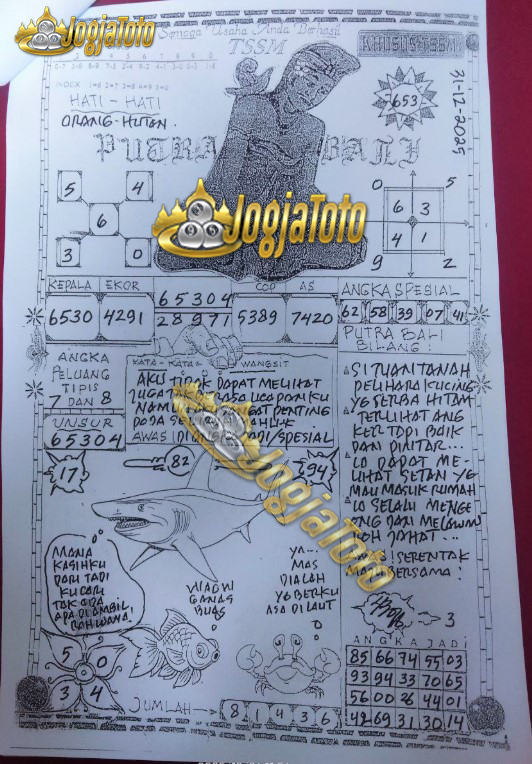 JogjaToto
Semoga Usaha Anda Berhasil
TSSM
KHUSUS TSSM
31-12-2025
653
HATI - HATI
ORANG-HUTAN.
PUTRA BALI
5 4
6
3 0
0 5
6 3
4 1
9 2
JogjaToto
KEPALA EKOR
6530 4291
65304
28971
COP AS
5389 7420
ANGKA SPESIAL
62 58 39 07 41
PUTRA BALI
BILANG:
ANGKA
PELUANG
TIPIS
7 DAN 8
UNSUR
65304
KATA - KATA WANGSIT
AKU TIDAK DAPAT MELIHAT
SI TUAN TANAH
PELIHARA KUCING
YG SERBA HITAM
TERLIHAT ANG
KER TAPI BAIK
DAN PINTAR...
LO DAPAT ME-
LIHAT SETAN YG
MAU MASUK RUMAH
LO SELALU MENGE
ONG DAN MELAWAN
ROH JAHAT...
SERENTAK
BERSAMA!
17
82
94
JogjaToto
MANA
KASIHKU
DARI TADI
KU CARI
TAK ADA
APA DI AMBIL
RAHWANA.
WAOW
GANAS
BUAS
YA...
MAS
DIALAH
YG BERKU
ASA DI LAUT
3
5 0
3 4
ANGKA JADI
85 66 74 55 03
93 94 33 70 65
56 00 26 44 01
42 69 31 30 14
JUMLAH → 8 1 4 3 6